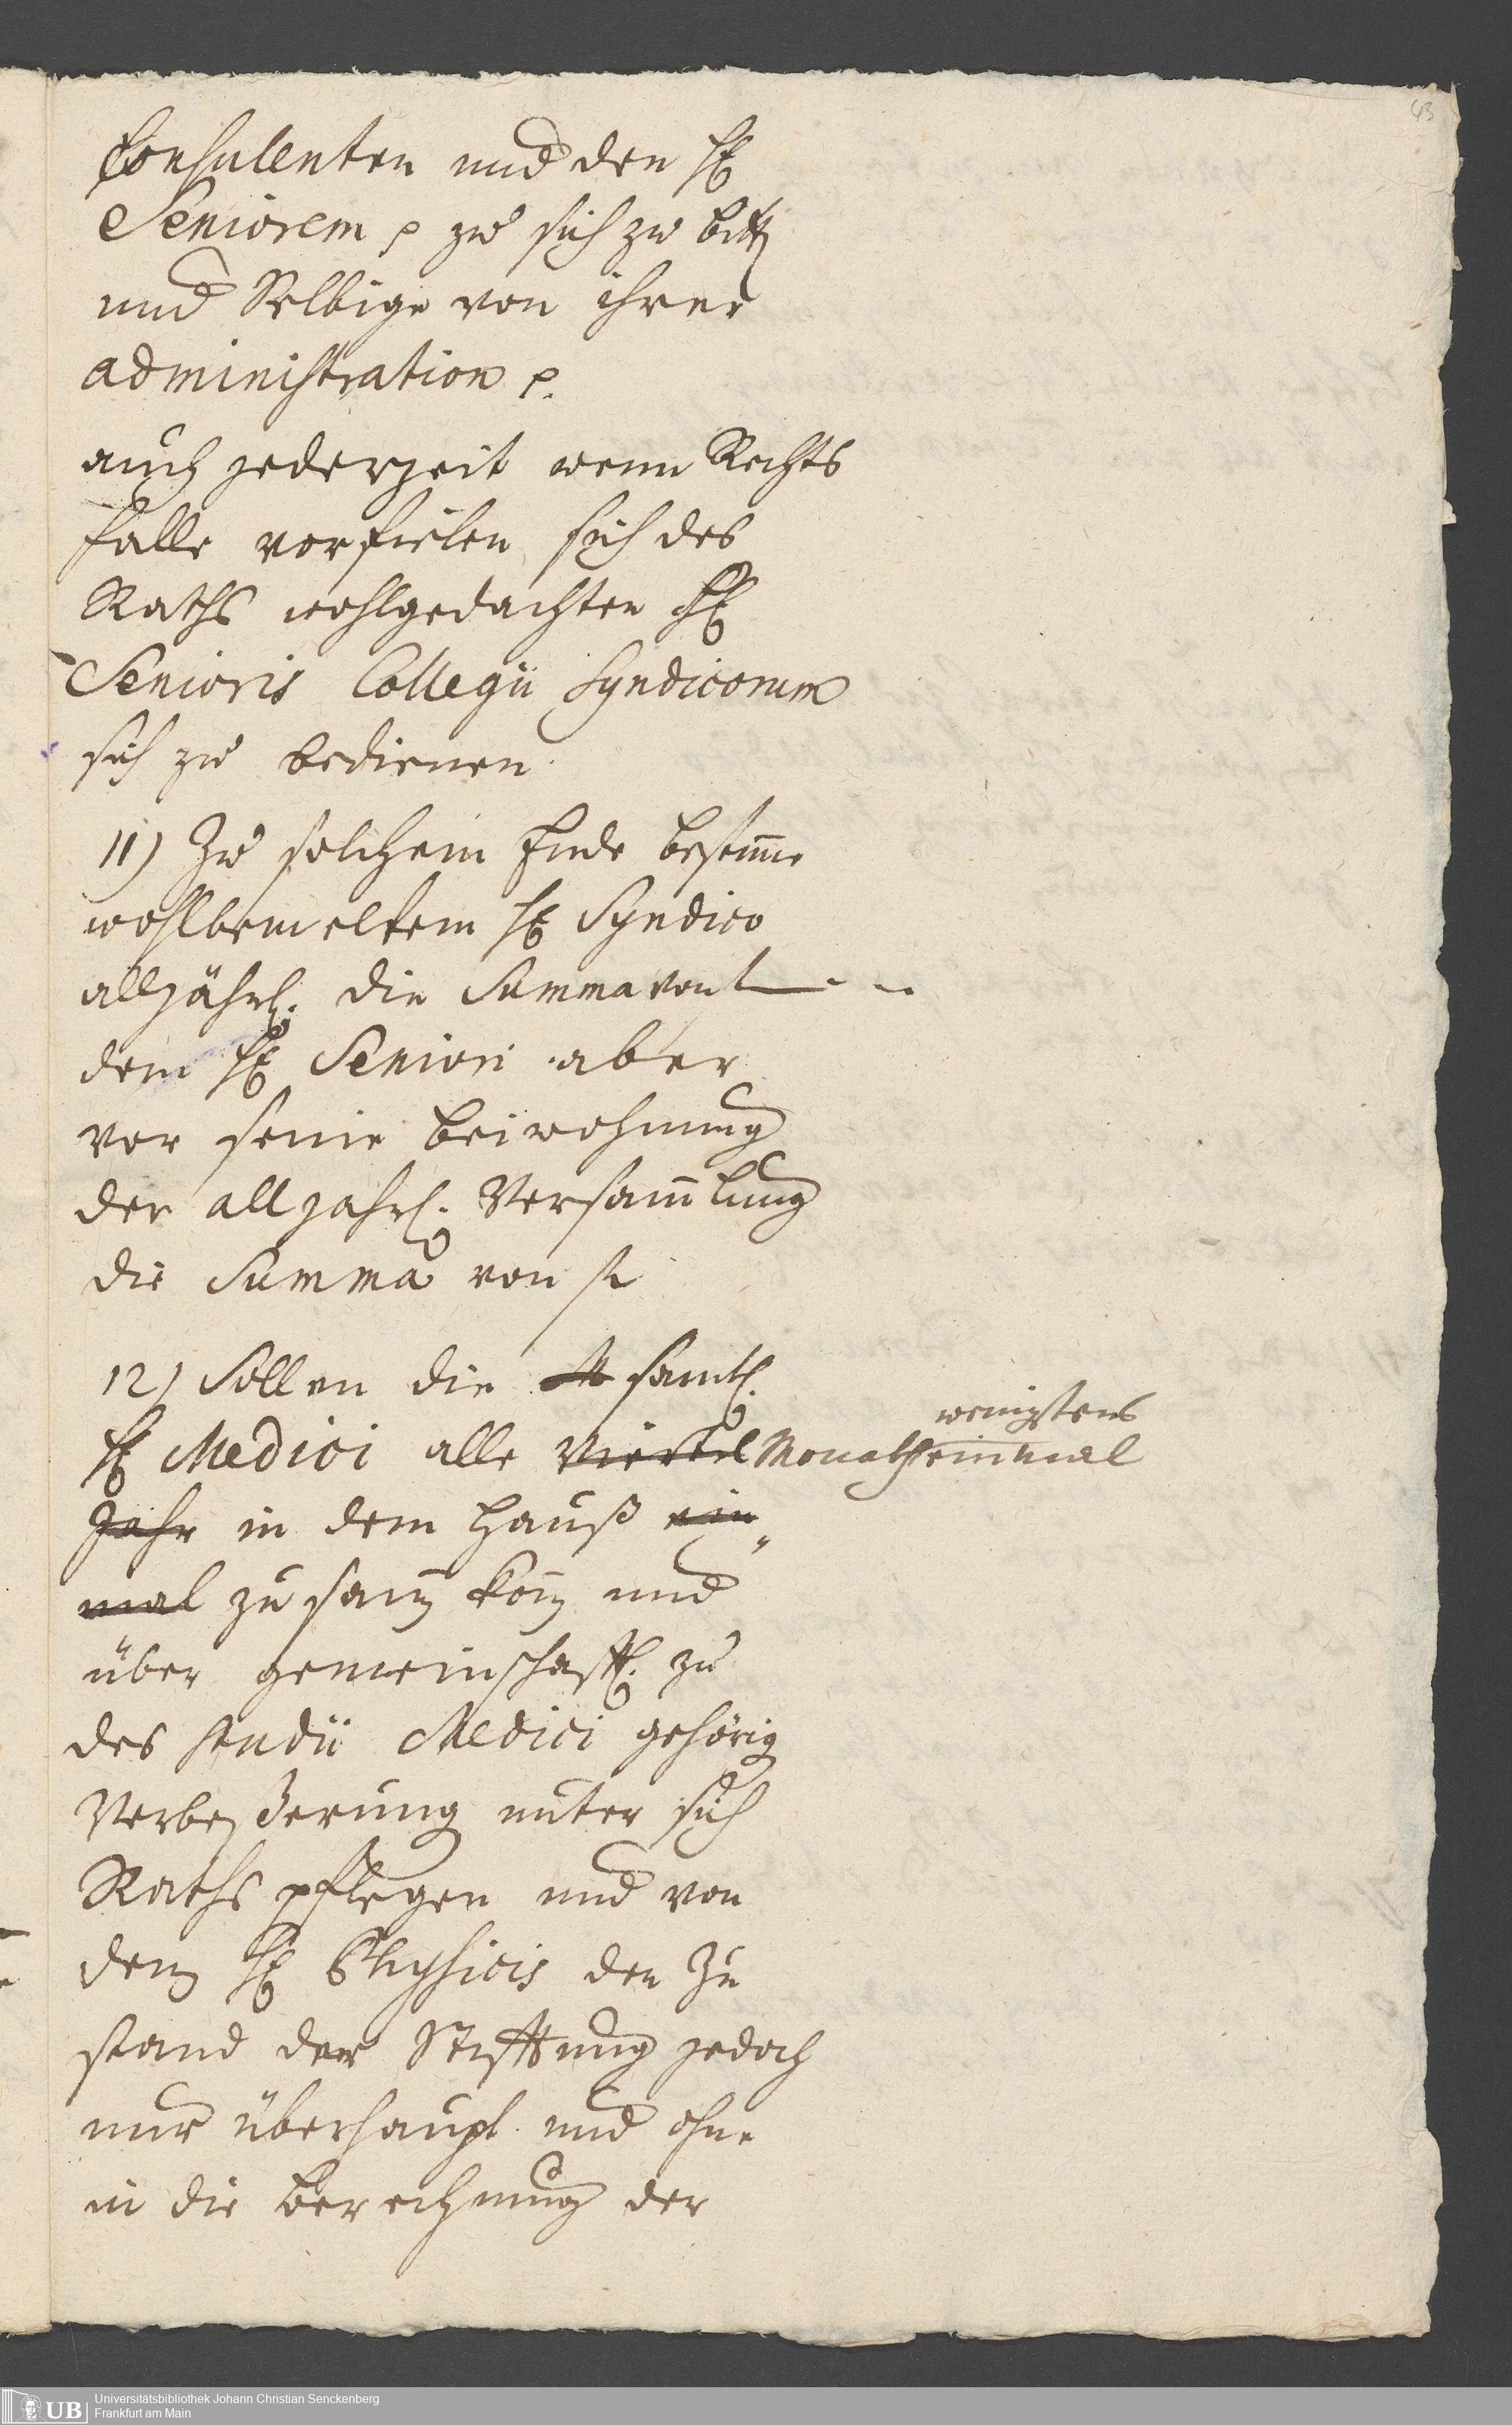 43
Consulenten und den H
Seniorem p zu sich zu bitt
und Selbige von ihrer
administration p.
auch jederzeit wenn Rechts
Fälle vorfielen sich des
Raths wohlgedachten H
Senioris Collegii Syndicorum
sich zu bedienen.
11) Zu solchem Ende bestimme
wohlbemeltem H Syndico
alljährl. die Summa von
dem H Seniori aber
vor seine Beiwohnung
der alljahrl. Versam̄lung
die Summa von fl
12) Sollen die samtl.
wenigstens
H Medici alle Viertel Monath einmal
Jahr in dem Hauß ein
mal zusam̄ kom̄ und
über gemeinschafftl. zu
des studii Medici gehörig
Verbeßerung unter sich
Raths pflegen und von
den H Physicis den Zu
stand der Stifftung jedoch
nur überhaupt und ohne
in die Berechnung der
UB
Universitätsbibliothek Johann Christian Senckenberg
Frankfurt am Main